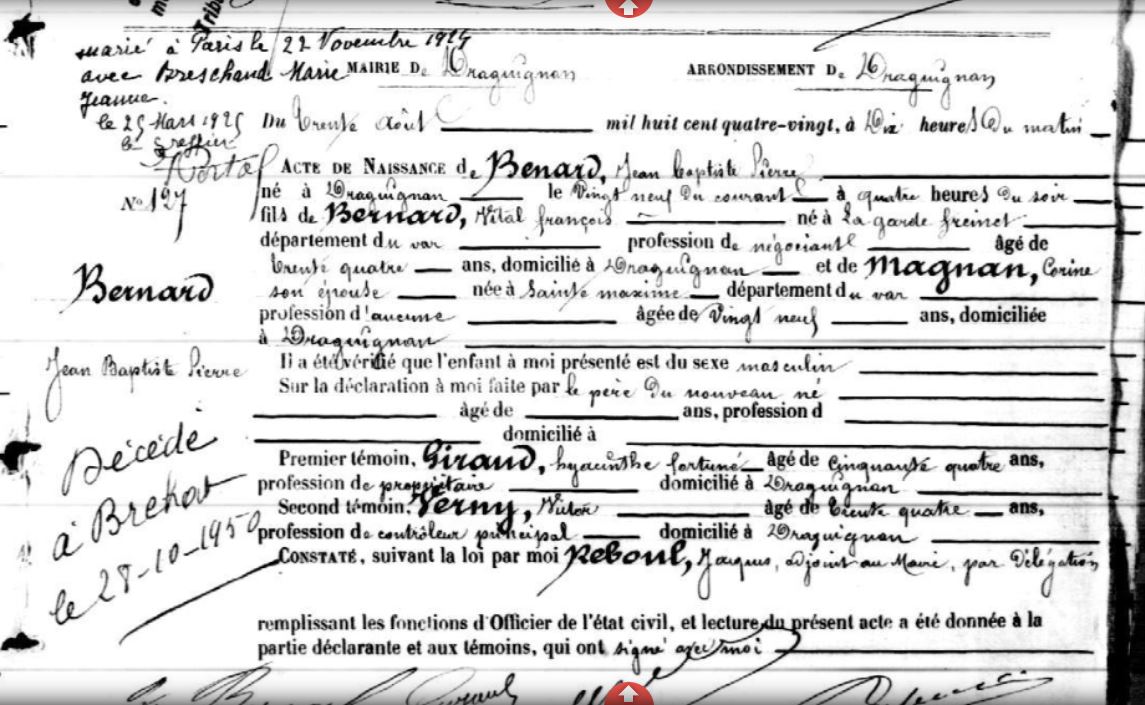 Trib
marié à Paris le 22 Novembre 1924
avec Breschand Marie
Jeanne.
le 25 Mars 1925
le greffier
Nº 127
Bernard
Jean Baptiste Pierre
Décédé
à Brehat
le 28-10-1950
MAIRIE De Draguignan ARRONDISSEMENT De Draguignan
Du trente Août mil huit cent quatre-vingt, à Dix heures Du matin
ACTE DE NAISSANCE de Benard, Jean Baptiste Pierre
né à Draguignan le Vingt neuf Du courant à quatre heures Du soir
fils de Bernard, Vital françois né à La garde freinet
département du var profession de négociant âgé de
trente quatre ans, domicilié à Draguignan et de Magnan, Corine
son épouse née à Sainte maxime département du var
profession d'aucune âgée de Vingt neuf ans, domiciliée
à Draguignan
Il a été vérifié que l'enfant à moi présenté est du sexe masculin
Sur la déclaration à moi faite par le père Du nouveau né
âgé de ans, profession d
domicilié à
Premier témoin, Giraud, hyacinthe fortuné âgé de Cinquante quatre ans,
profession de propriétaire domicilié à Draguignan
Second témoin, Verny, Victor âgé de trente quatre ans,
profession de contrôleur principal domicilié à Draguignan
CONSTATÉ, suivant la loi par moi Reboul, Jacques, adjoint au Maire, par Délégation
remplissant les fonctions d'Officier de l'état civil, et lecture du présent acte a été donnée à la
partie déclarante et aux témoins, qui ont signé avec moi